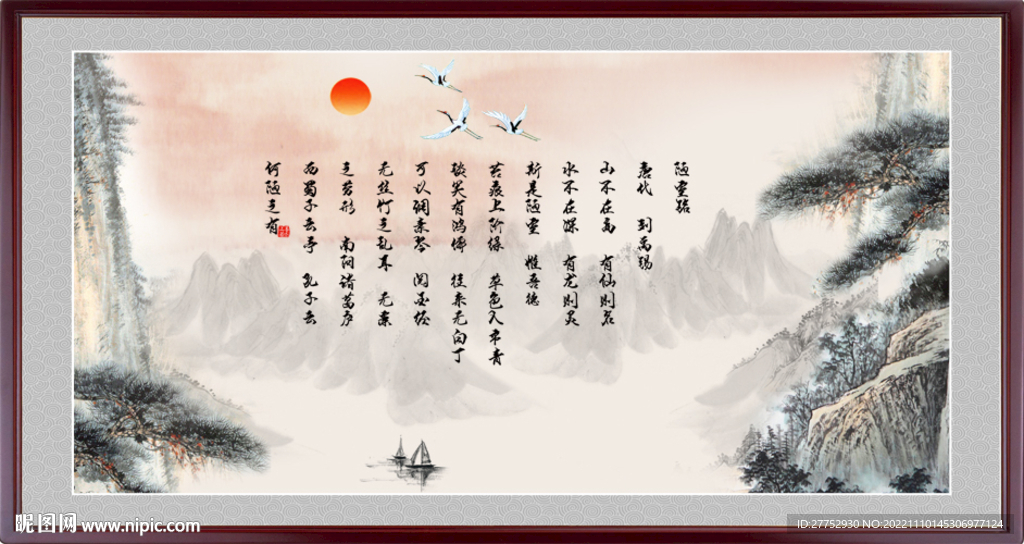 陋室铭
唐代 刘禹锡
山不在高 有仙则名
水不在深 有龙则灵
斯是陋室 惟吾德
苔痕上阶绿 草色入帘青
谈笑有鸿儒 往来无白丁
可以调素琴 阅金经
无丝竹之乱耳 无案
之劳形 南阳诸葛庐
西蜀子云亭 孔子云
何陋之有
昵图网 www.nipic.com
ID:27752930 NO:20221110145306977124